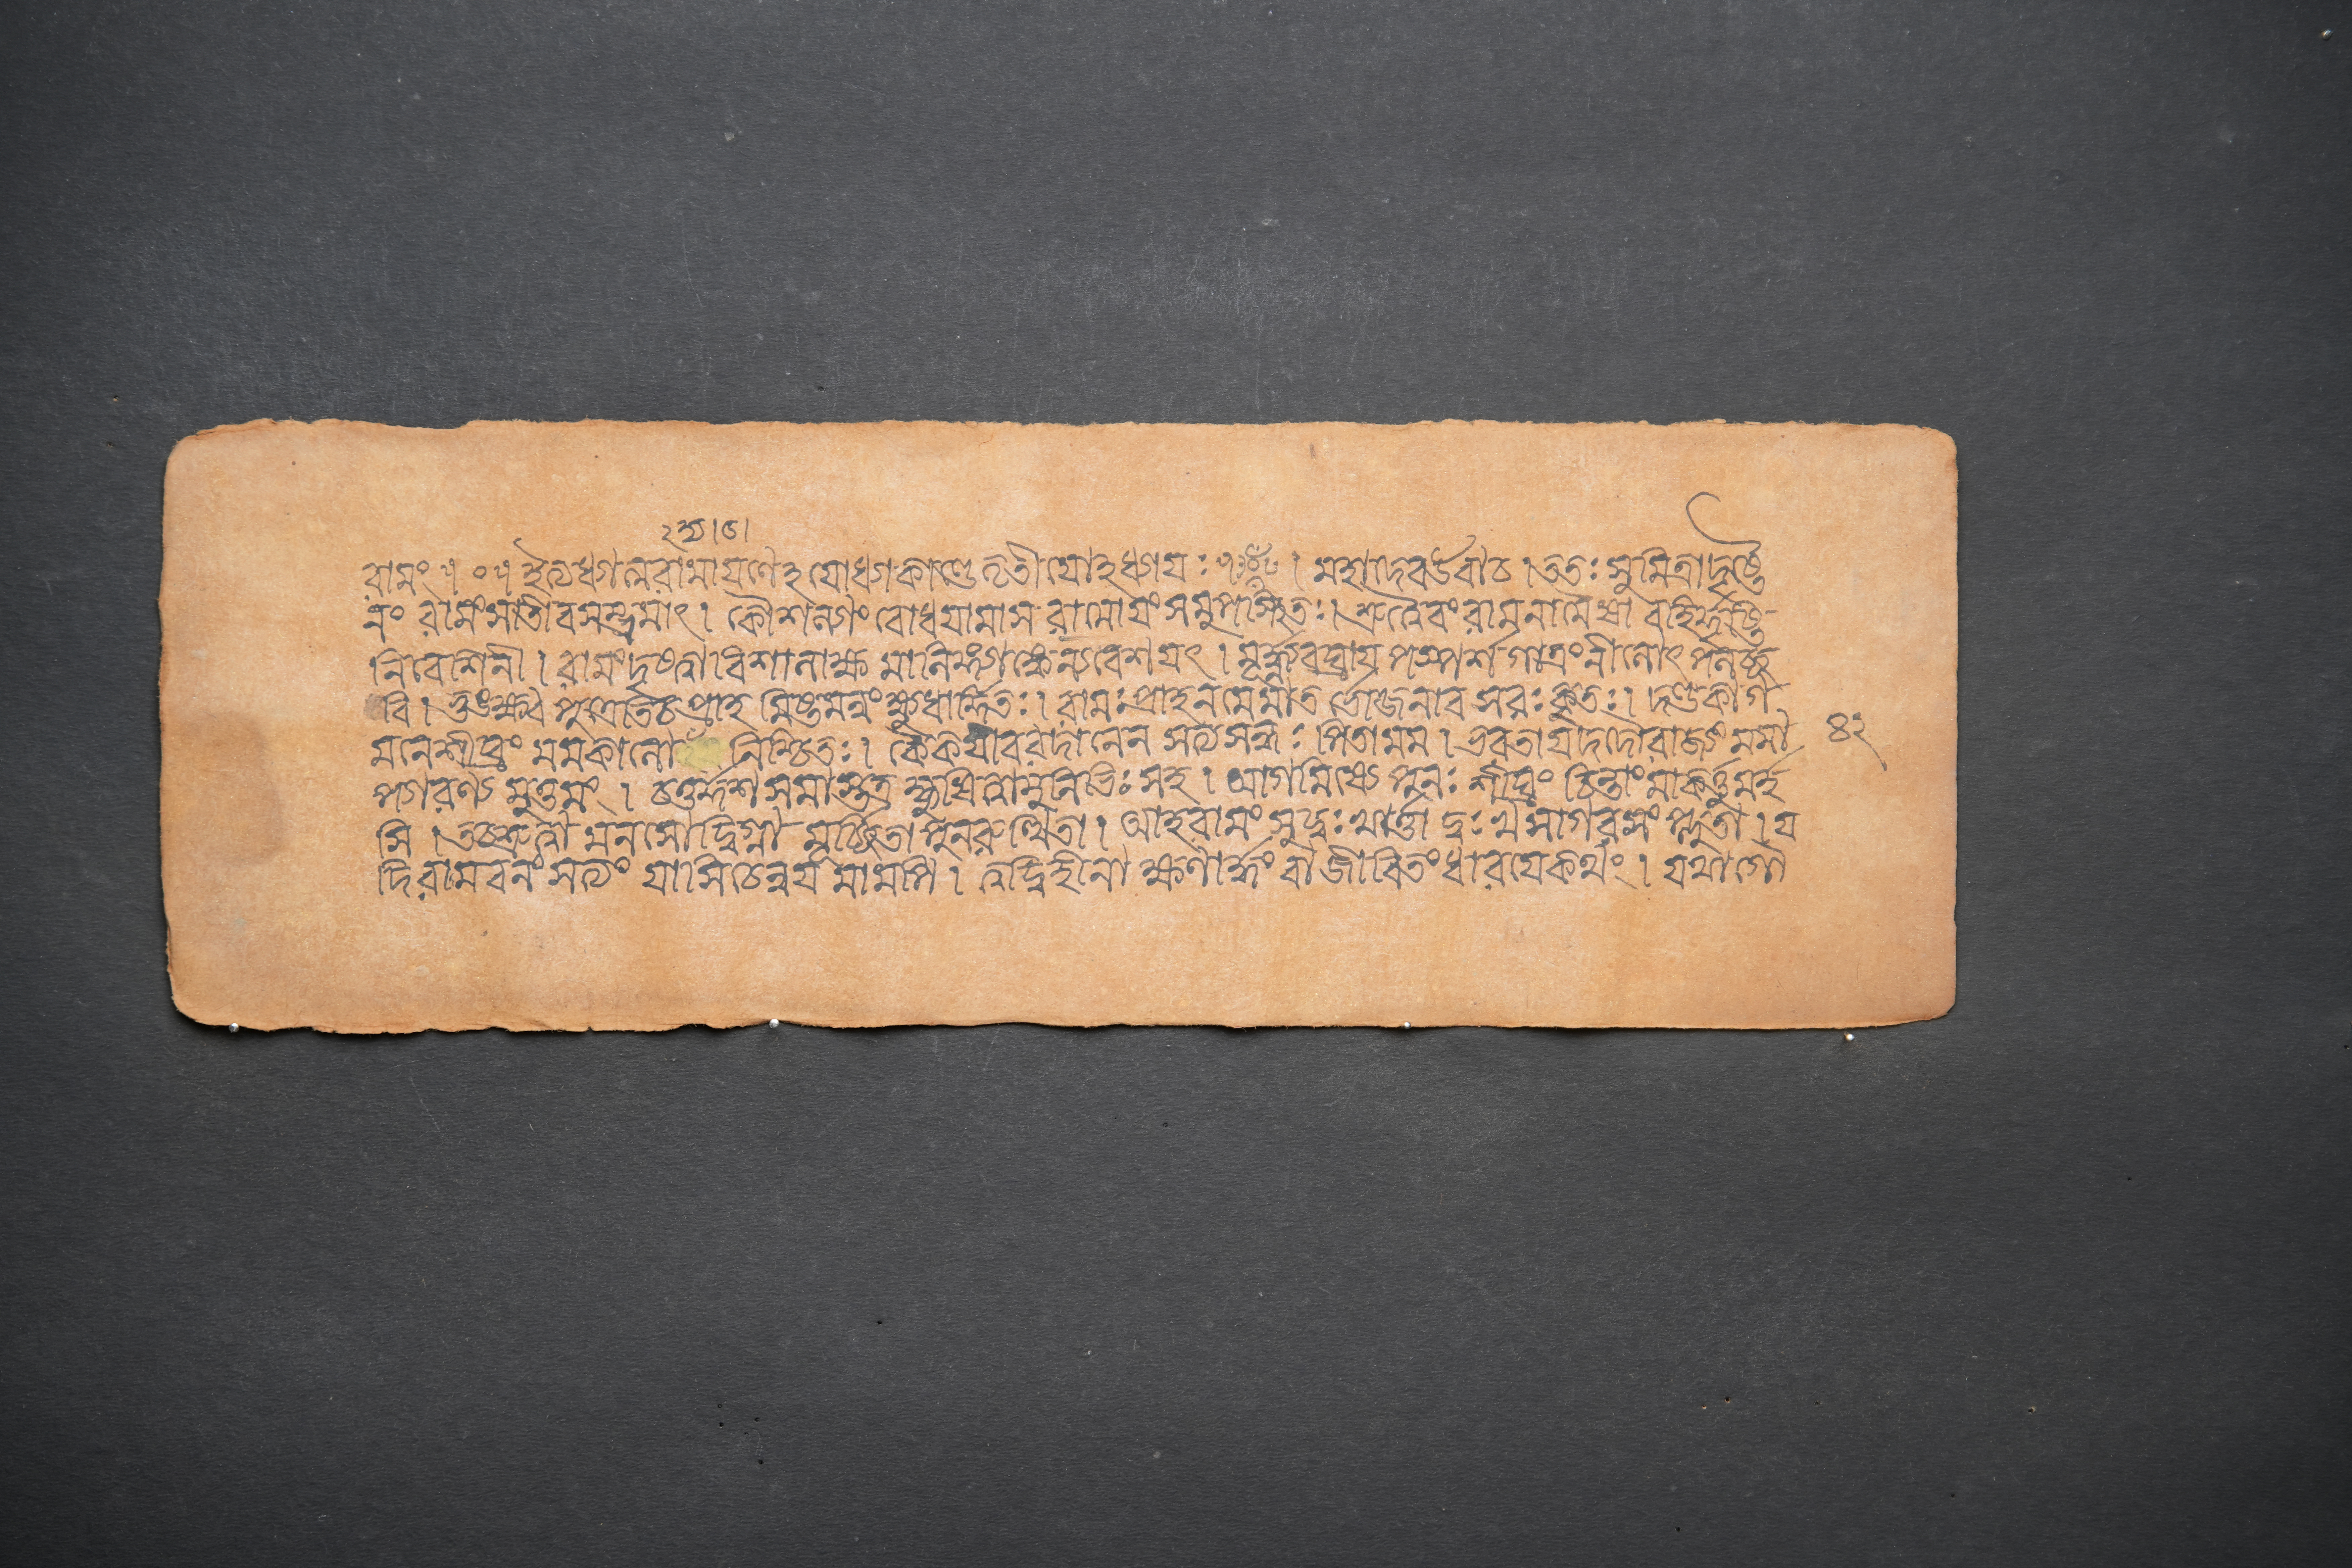 রামং ॥ ০ ॥ ইত্যধ্যাত্মরামায়ণেঽযোধ্যাকাণ্ডে তৃতীয়োঽধ্যায়ঃ । মহাদেব উবাচ । ততঃ সুমিত্রা দৃষ্ট্বৈ
নং রামং সসম্ভ্রমাৎ । কৌশল্যাং বোধয়ামাস রামোয়ং সমুপস্থিতঃ । শ্রুত্বৈবং রামনামৈষা বহির্দৃষ্টি-
নিবেশিনী । রামং দৃষ্ট্বা বিশালাক্ষমালিঙ্গ্যাঙ্কে ন্যবেশয়ৎ । মূর্দ্ধ্ন্যবঘ্রায় পস্পর্শ গাত্রং নীলোৎপলচ্ছ
বি । ভুঙ্ক্ষ্ব পুত্রেতি চ প্রাহ মিষ্টমন্নং ক্ষুধার্দ্দিতঃ । রামঃ প্রাহ ন মে মাতর্ভোজনাবসরঃ কুতঃ । দণ্ডকাগ
মনে শীঘ্রং মম কালো নিশ্চিতঃ । কৈকেয়ীবরদানেন সত্যসন্ধঃ পিতা মম । ভরতায় দদৌ রাজ্যং মমা
প্যারণ্যমুত্তমং । চতুর্দ্দশ সমাস্তত্র হ্যুষিত্বা মুনিভিঃ সহ । আগমিষ্যে পুনঃ শীঘ্রং চিন্তাং মা কর্ত্তুমর্হ
সি । তচ্ছ্রুত্বা মনসোদ্বিগ্না মূর্চ্ছিতা পুনরুত্থিতা । আহ রামং সুদুঃখার্ত্তা দুঃখসাগরসংপ্লুতা । য
দি রাম বনং সত্যং যাসি চেন্নয় মামপি । ত্বদ্বিহীনা ক্ষণার্দ্ধং বা জীবিতং ধারয়ে কথং । যথা গৌ
৪২